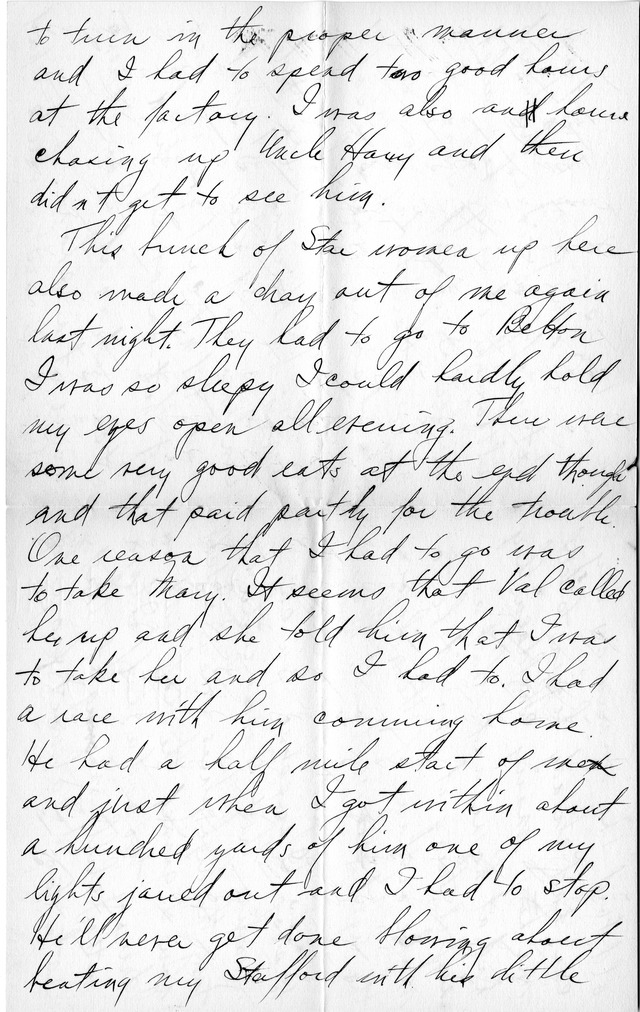 to turn in the proper manner
and I had to spend two good hours
at the factory. I was also an hour
chasing up Uncle Harry and then
didn't get to see him.
This bunch of Star women up here
also made a dray out of me again
last night. They had to go to Belton
I was so sleepy I could hardly hold
my eyes open all evening. There were
some very good eats at the end though
and that paid partly for the trouble.
One reason that I had to go was
to take Mary. It seems that Val called
her up and she told him that I was
to take her and so I had to. I had
a race with him comming home.
He had a half mile start of me
and just when I got within about
a hundred yards of him one of my
lights jared out and I had to stop.
He'll never get done blowing about
beating my Stafford with his little